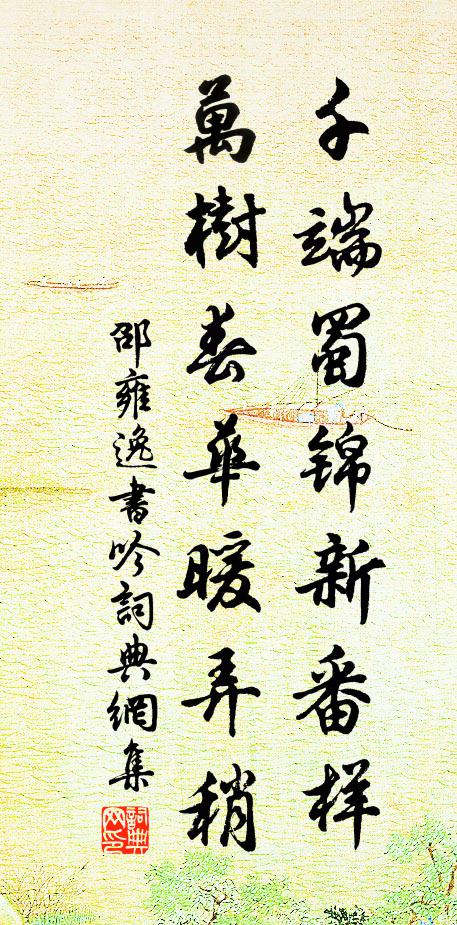 千端蜀锦新番样
萬樹春華暖弄稍
邵雍逸書吟詞典網集
詞典网印